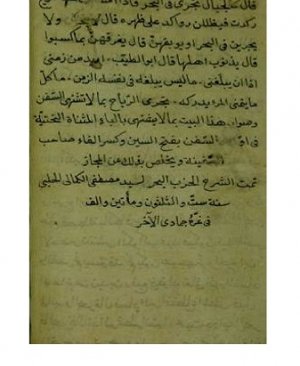 قال كالجبال تجري في البحر فاذا امسك
ركدت فيظللن رواكد على ظهره قال لا يتحركن ولا
يجرين في البحر او يوبقهن قال يغرقهن بما كسبوا
قال بذنوب اهلها قال ابو الطيب اريد من زمني
ذا ان يبلغني ماليس يبلغه في نفسه الزمن ماكل
ما يتمنى المرء يدركه تجري الرياح بما لا تشتهي السفن
وصوا هذا البيت بما لا يشتهي بالياء المثناة التحتية
السفن بفتح السين وكسر الفاء صاحب
سفينة ويتخلص بذلك من المجاز
تمت الشرح الحزب البحر لسيد مصطفى الكمالي الحلبي
سنة ست والثلثون ومأتين والف
في غرة جمادى الآخر